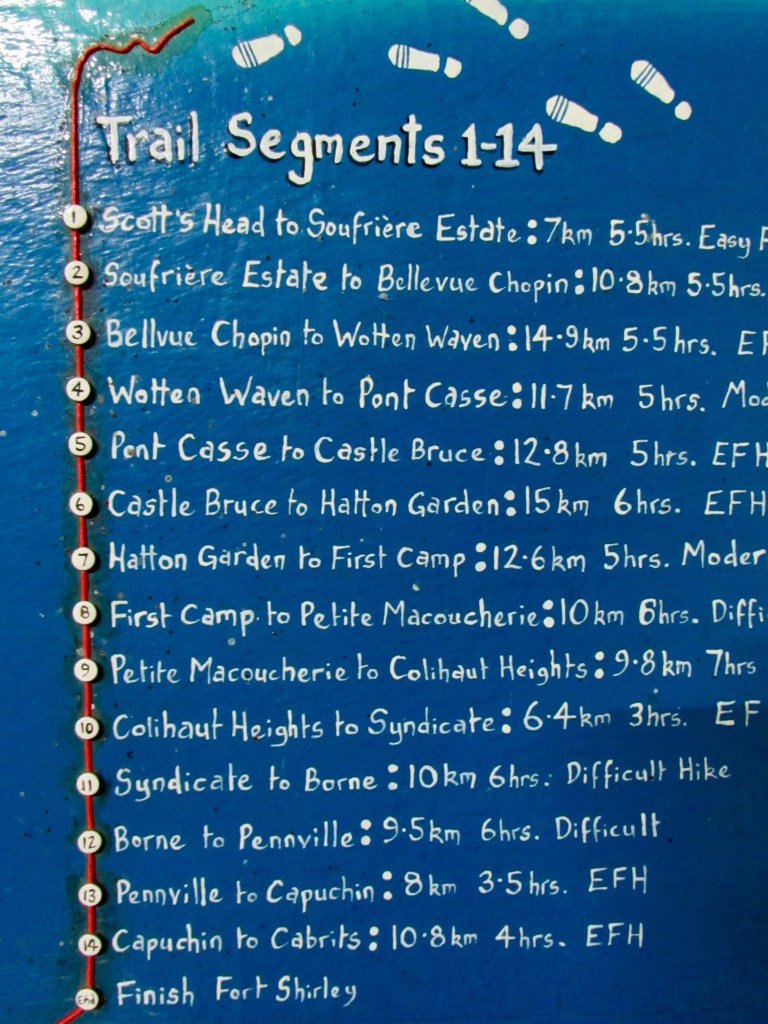 Trail Segments 1-14
1 Scott's Head to Soufrière Estate: 7km 5.5hrs. Easy
2 Soufrière Estate to Bellevue Chopin: 10.8km 5.5hrs.
3 Bellvue Chopin to Wotten Waven: 14.9km 5.5hrs. EF
4 Wotten Waven to Pont Casse: 11.7km 5hrs. Mod
5 Pont Casse to Castle Bruce: 12.8km 5hrs. EFH
6 Castle Bruce to Hatton Garden: 15km 6hrs. EFH
7 Hatton Garden to First Camp: 12.6km 5hrs. Moder
8 First Camp to Petite Macoucherie: 10km 6hrs. Diffi
9 Petite Macoucherie to Colihaut Heights: 9.8km 7hrs
10 Colihaut Heights to Syndicate: 6.4km 3hrs. EF
11 Syndicate to Borne: 10km 6hrs. Difficult Hike
12 Borne to Pennville: 9.5km 6hrs. Difficult
13 Pennville to Capuchin: 8km 3.5hrs. EFH
14 Capuchin to Cabrits: 10.8km 4hrs. EFH
End Finish Fort Shirley